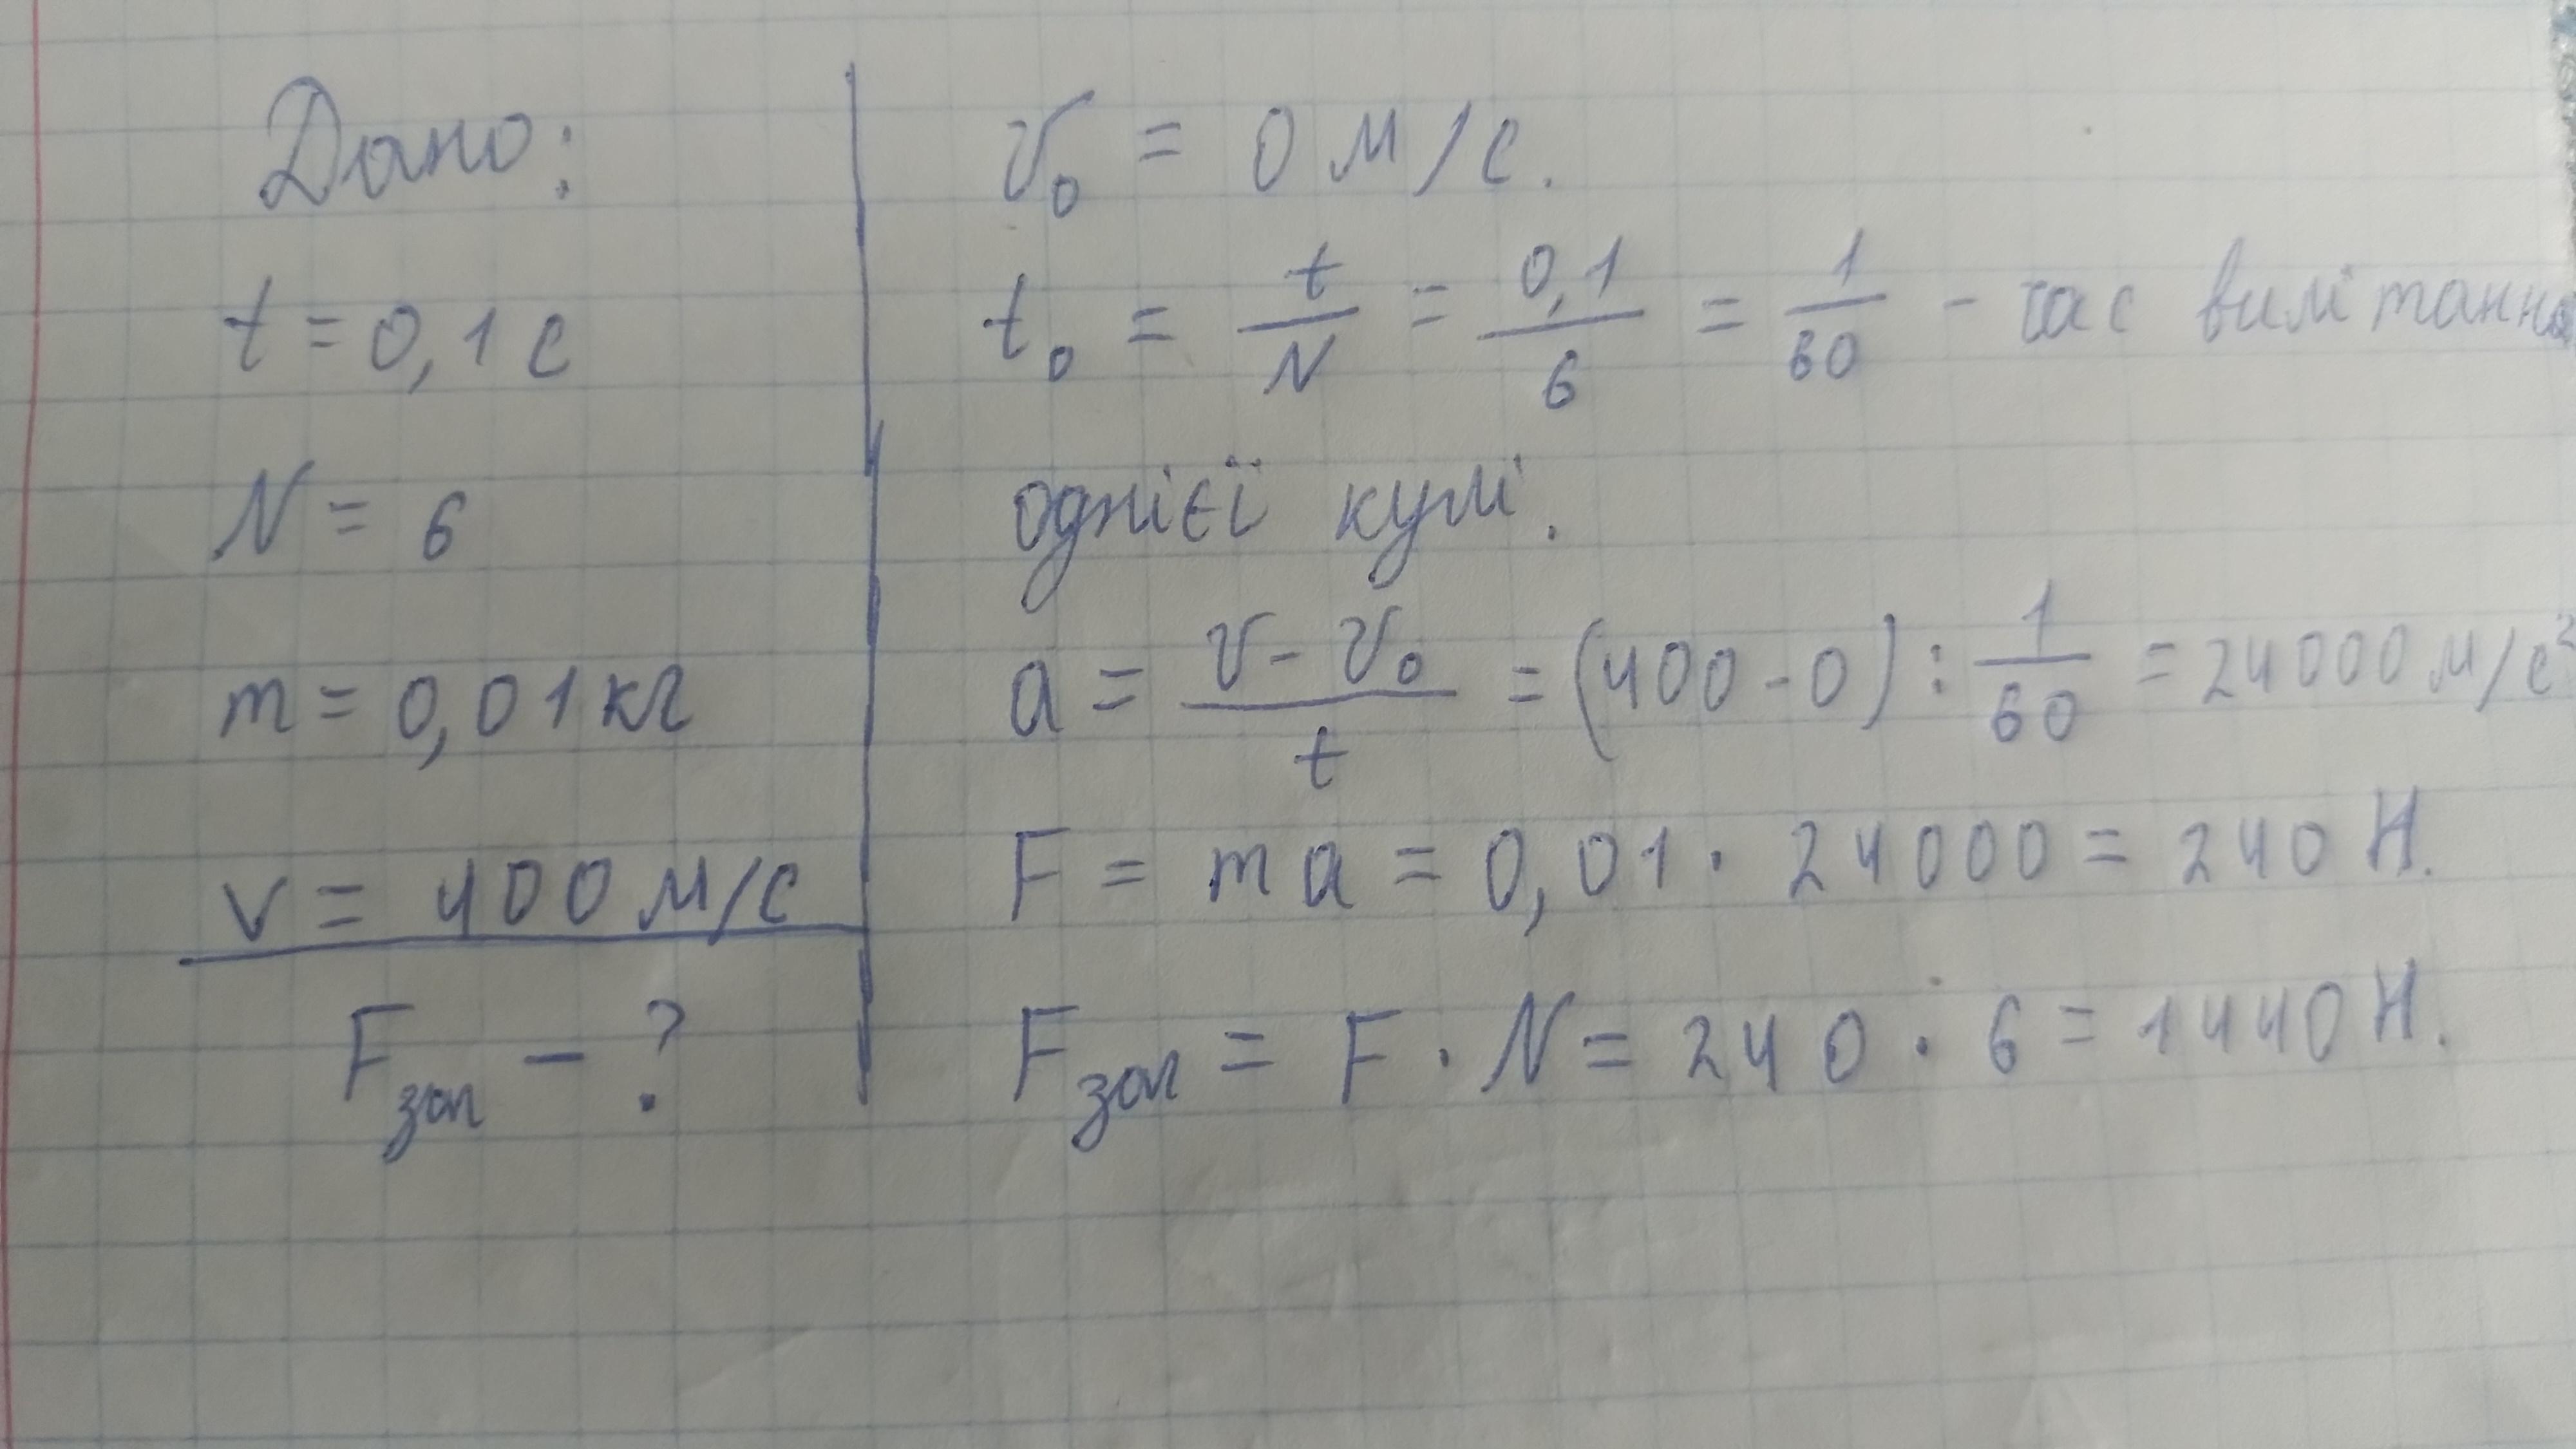 Дано:
t = 0,1 с
N = 6
m = 0,01 кг
v = 400 м/с
Fзаг - ?
v₀ = 0 м/с.
t₀ = t/N = 0,1/6 = 1/60 - час вилітання
однієї кулі.
a = (v - v₀)/t = (400 - 0) : 1/60 = 24000 м/с²
F = ma = 0,01 · 24000 = 240 Н.
Fзаг = F · N = 240 · 6 = 1440 Н.